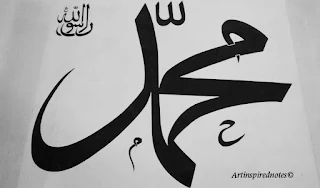 محمد
رسول الله
Artinspirednotes©